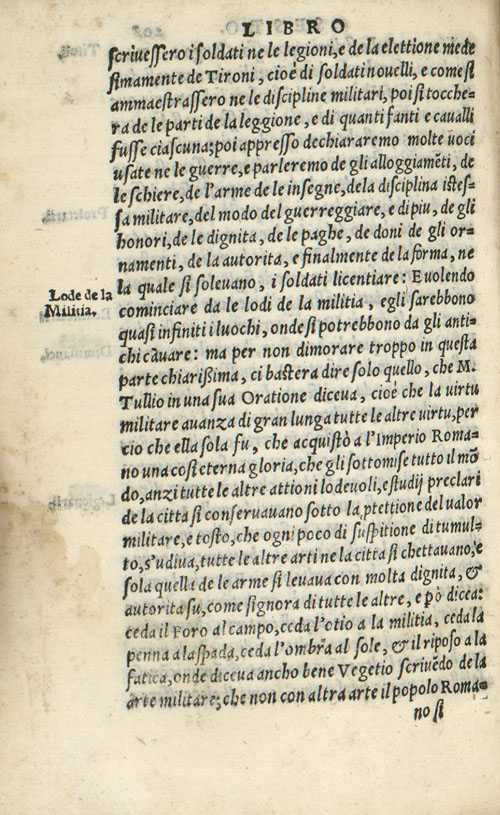 LIBRO
ſcriveſſero i ſoldati ne le legioni, e de la elettione mede
ſimamente de Tironi, cioé di ſoldati nouelli, e come ſi
ammaeſtraſſero ne le diſcipline militari, poi ſi tocche-
ra de le parti de la leggione, e di quanti fanti e cavalli
fuſſe ciaſcuna; poi appreſſo dechiararemo molte uoci
uſate ne le guerre, e parleremo de gli alloggiamēti, de
le ſchiere, de l'arme de le inſegne, de la diſciplina iſteſ-
ſa militare, del modo del guerreggiare, e di piu, de gli
honori, de le dignita, de le paghe, de doni de gli or-
namenti, de la autorita, e finalmente de la forma, ne
la quale ſi ſolevano, i ſoldati licentiare: E volendo
Lode de la
Militia.
cominciare da le lodi de la militia, egli ſarebbono
quaſi infiniti i luochi, onde ſi potrebbono da gli anti-
chi cāuare: ma per non dimorare troppo in queſta
parte chiariſſima, ci baſtera dire ſolo quello, che M.
Tullio in una ſua Oratione diceua, cioé che la virtu
militare avanza di gran lunga tutte le altre virtu, per
cio che ella ſola fu, che acquiſtò a l'Imperio Roma-
no una coſi eterna gloria, che gli ſottomiſe tutto il mō
do, anzi tutte le altre attioni lodevoli, e ſtudij preclari
de la citta ſi conſeruavano ſotto la ꝓtettione del valor
militare, e toſto, che ogni poco di ſuſpitione di tumul-
to, s'udiva, tutte le altre arti ne la citta ſi chettavano, e
ſola quella de le arme ſi levava con molta dignita, &
autorita ſu, come ſignora di tutte le altre, e ꝑò dicea:
ceda il Foro al campo, ceda l'otio a la militia, ceda la
penna a la ſpada, ceda l'ombra al ſole, & il ripoſo a la
fatica, onde diceva ancho bene Vegetio ſcrivēdo de la
arte militare; che non con altra arte il popolo Roma-
no ſi